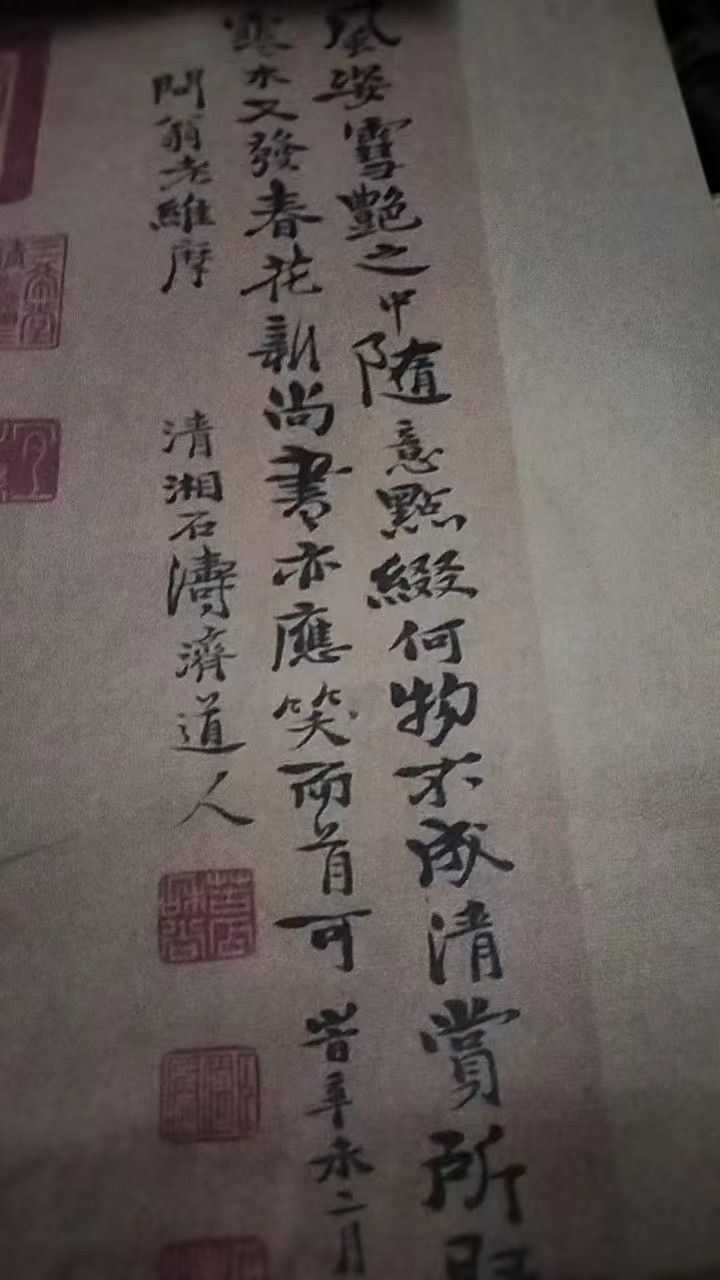 風姿雪艷之中随意點綴何物不成清賞所
寒木又發春花新尚書亦應笑而首可 旹辛未二月
問翁老維摩 清湘石濤濟道人